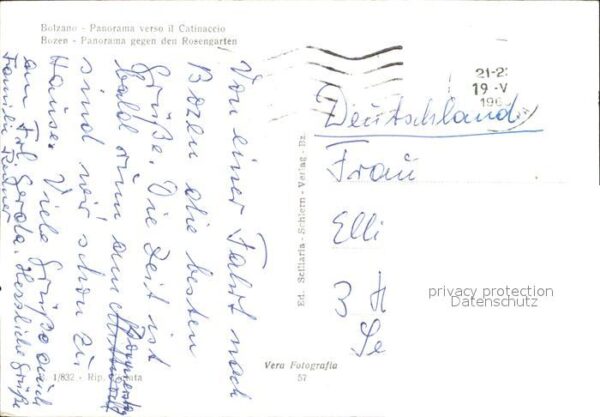 Bolzano - Panorama verso il Catinaccio
Bozen - Panorama gegen den Rosengarten
Von einer Fahrt nach
Bozen die besten
Grüße. Die Zeit ist
bald rum am
Donnerstag
sind wir schon zu
Hause. Viele Grüße auch
an Frl. Gerda. Herzliche Grüße
Familie
21-2
19 -V
196
Deutschland
Frau
Elli
3 H
Se
privacy protection
Datenschutz
Ed. Sciliaria - Schlern - Verlag - Bz.
1/832 - Rip.
Vera Fotografia
57